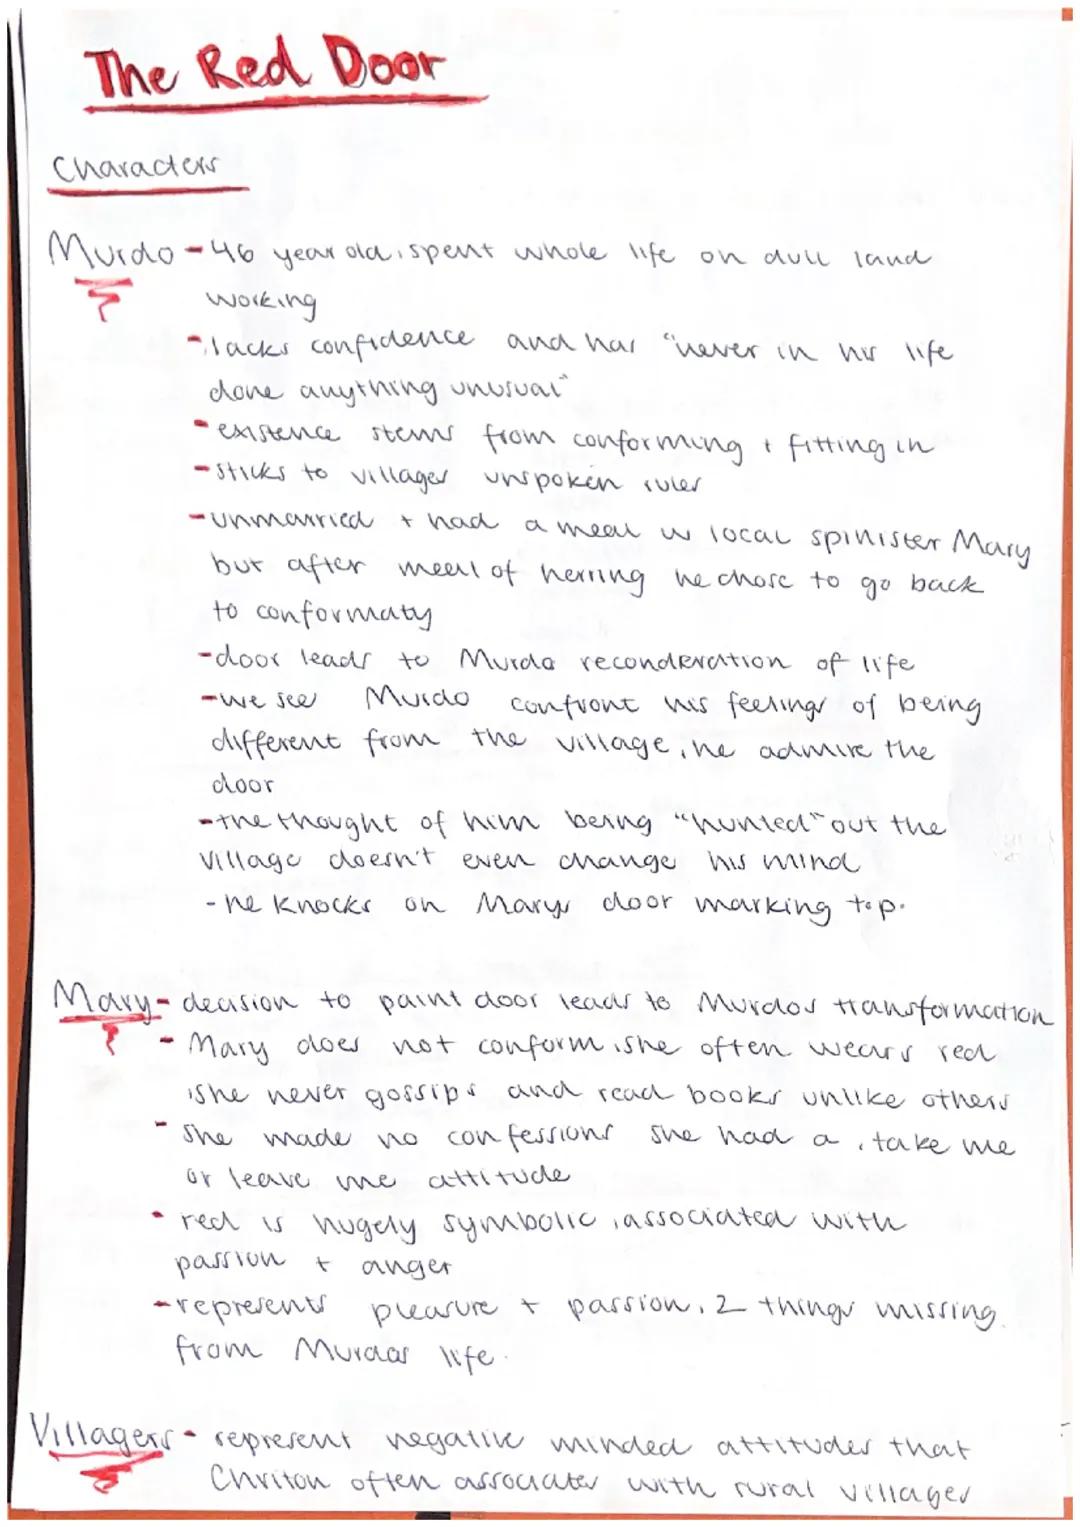 The Red Door
Characters
Murdo - 46 year old, spent whole life on dull land
working
- lacks confidence and has "never in his life
done anything unusual"
- existence stems from conforming + fitting in
- sticks to villages unspoken rules
- unmarried + had a meal w local spinister Mary
but after meal of herring he chose to go back
to conformaty
- door leads to Murdo reconderation of life
- we see Murdo confront his feelings of being
different from the village, he admire the
door
- the thought of him being "hunted" out the
village doesn't even change his mind
- he knocks on Marys door marking t.p.
Mary - decision to paint door leads to Murdos transformation
- Mary does not conform, she often wears red
, she never gossips and read books unlike others
- she made no confessions she had a , take me
or leave me attitude
- red is hugely symbolic, associated with
passion + anger
- represents pleasure + passion, 2 things missing
from Murdos life.
Villagers - represent negative minded attitudes that
Chriton often associates with rural villages